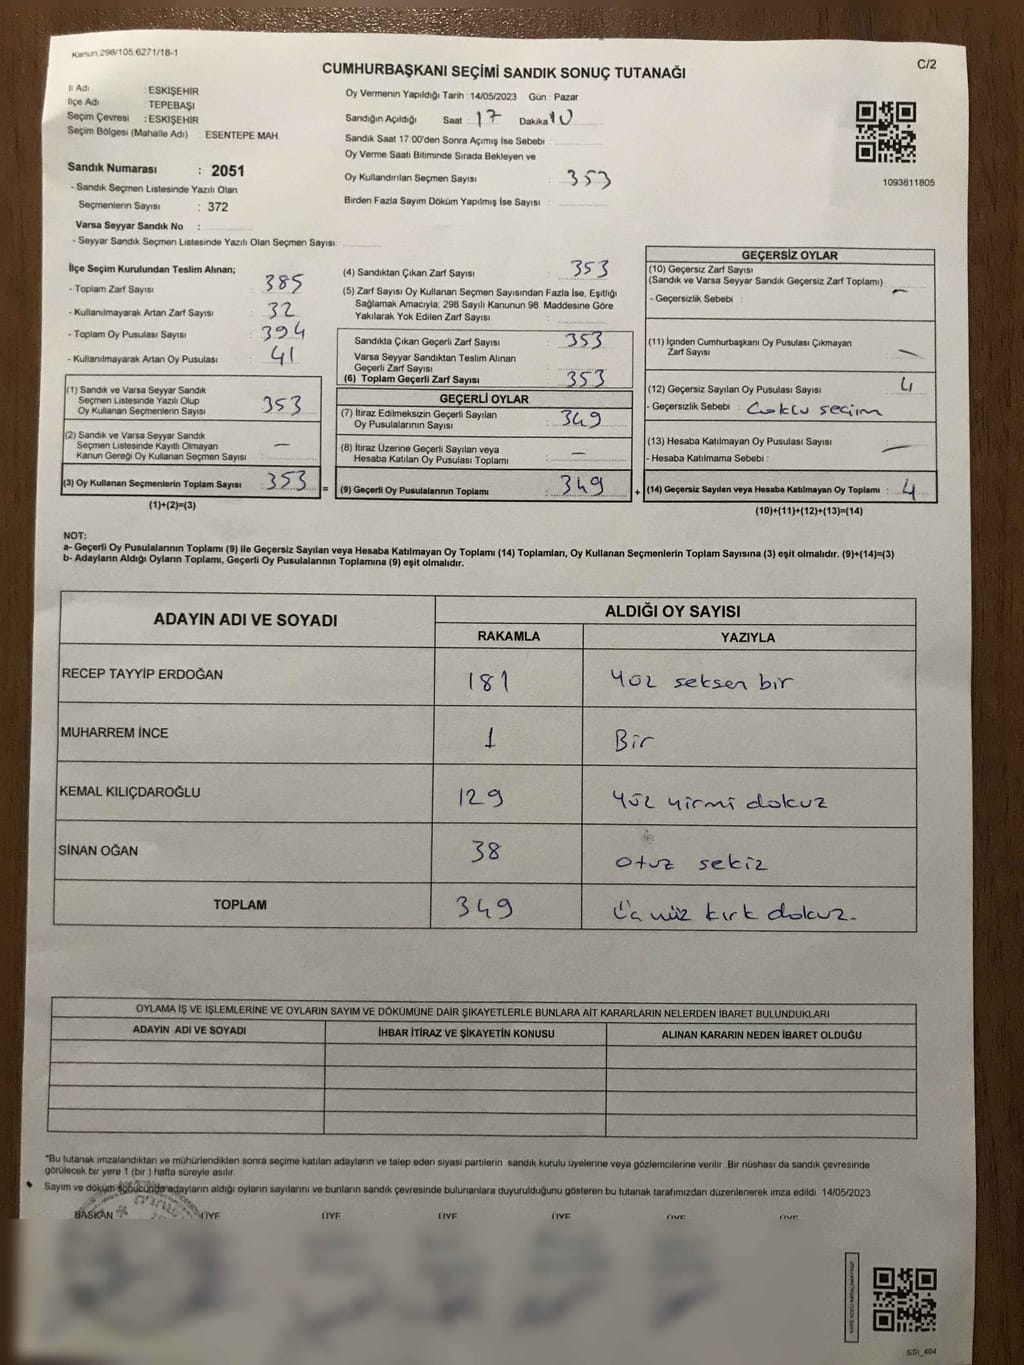 Kanun 298/105,6271/18-1
C/2
CUMHURBAŞKANI SEÇİMİ SANDIK SONUÇ TUTANAĞI
İl Adı : ESKİŞEHİR
İlçe Adı : TEPEBAŞI
Seçim Çevresi : ESKİŞEHİR
Seçim Bölgesi (Mahalle Adı) : ESENTEPE MAH.
Sandık Numarası : 2051
- Sandık Seçmen Listesinde Yazılı Olan
Seçmenlerin Sayısı : 372
Varsa Seyyar Sandık No :
- Seyyar Sandık Seçmen Listesinde Yazılı Olan Seçmen Sayısı:
Oy Vermenin Yapıldığı Tarih :14/05/2023 Gün : Pazar
Sandığın Açıldığı Saat : 17 Dakika 10
Sandık Saat 17:00'den Sonra Açımış İse Sebebi :
Oy Verme Saati Bitiminde Sırada Bekleyen ve
Oy Kullandırılan Seçmen Sayısı : 353
Birden Fazla Sayım Döküm Yapılmış İse Sayısı :
1093811805
İlçe Seçim Kurulundan Teslim Alınan;
- Toplam Zarf Sayısı : 385
- Kullanılmayarak Artan Zarf Sayısı : 32
- Toplam Oy Pusulası Sayısı : 394
- Kullanılmayarak Artan Oy Pusulası : 41
(1) Sandık ve Varsa Seyyar Sandık
Seçmen Listesinde Yazılı Olup
Oy Kullanan Seçmenlerin Sayısı : 353
(2) Sandık ve Varsa Seyyar Sandık
Seçmen Listesinde Kayıtlı Olmayan
Kanun Gereği Oy Kullanan Seçmen Sayısı : —
(3) Oy Kullanan Seçmenlerin Toplam Sayısı : 353
(1)+(2)=(3)
=
(4) Sandıktan Çıkan Zarf Sayısı : 353
(5) Zarf Sayısı Oy Kullanan Seçmen Sayısından Fazla İse, Eşitliği
Sağlamak Amacıyla, 298 Sayılı Kanunun 98. Maddesine Göre
Yakılarak Yok Edilen Zarf Sayısı :
Sandıkta Çıkan Geçerli Zarf Sayısı : 353
Varsa Seyyar Sandıktan Teslim Alınan
Geçerli Zarf Sayısı :
(6) Toplam Geçerli Zarf Sayısı : 353
GEÇERLİ OYLAR
(7) İtiraz Edilmeksizin Geçerli Sayılan
Oy Pusulalarının Sayısı : 349
(8) İtiraz Üzerine Geçerli Sayılan veya
Hesaba Katılan Oy Pusulası Toplamı : —
(9) Geçerli Oy Pusulalarının Toplamı : 349
+
GEÇERSİZ OYLAR
(10) Geçersiz Zarf Sayısı
(Sandık ve Varsa Seyyar Sandık Geçersiz Zarf Toplamı) : —
- Geçersizlik Sebebi :
(11) İçinden Cumhurbaşkanı Oy Pusulası Çıkmayan
Zarf Sayısı : —
(12) Geçersiz Sayılan Oy Pusulası Sayısı : 4
- Geçersizlik Sebebi : Çoklu seçim
(13) Hesaba Katılmayan Oy Pusulası Sayısı : —
- Hesaba Katılmama Sebebi :
(14) Geçersiz Sayılan veya Hesaba Katılmayan Oy Toplamı : 4
(10)+(11)+(12)+(13)=(14)
NOT:
a- Geçerli Oy Pusulalarının Toplamı (9) ile Geçersiz Sayılan veya Hesaba Katılmayan Oy Toplamı (14) Toplamları, Oy Kullanan Seçmenlerin Toplam Sayısına (3) eşit olmalıdır. (9)+(14)=(3)
b- Adayların Aldığı Oyların Toplamı, Geçerli Oy Pusulalarının Toplamına (9) eşit olmalıdır.
ADAYIN ADI VE SOYADI ALDIĞI OY SAYISI
RAKAMLA YAZIYLA
RECEP TAYYİP ERDOĞAN 181 Yüz seksen bir
MUHARREM İNCE 1 Bir
KEMAL KILIÇDAROĞLU 129 Yüz yirmi dokuz
SİNAN OĞAN 38 otuz sekiz
TOPLAM 349 kırk dokuz.
OYLAMA İŞ VE İŞLEMLERİNE VE OYLARIN SAYIM VE DÖKÜMÜNE DAİR ŞİKAYETLERLE BUNLARA AİT KARARLARIN NELERDEN İBARET BULUNDUKLARI
ADAYIN ADI VE SOYADI İHBAR İTİRAZ VE ŞİKAYETİN KONUSU ALINAN KARARIN NEDEN İBARET OLDUĞU
*Bu tutanak imzalandıktan ve mühürlendikten sonra seçime katılan adayların ve talep eden siyasi partilerin sandık kurulu üyelerine veya gözlemcilerine verilir. Bir nüshası da sandık çevresinde
görülecek bir yere 1 (bir ) hafta süreyle asılır.
Sayım ve döküm sonucunda adayların aldığı oyların sayılarını ve bunların sandık çevresinde bulunanlara duyurulduğunu gösteren bu tutanak tarafımızdan düzenlenerek imza edildi. 14/05/2023
BAŞKAN ÜYE ÜYE ÜYE ÜYE ÜYE ÜYE